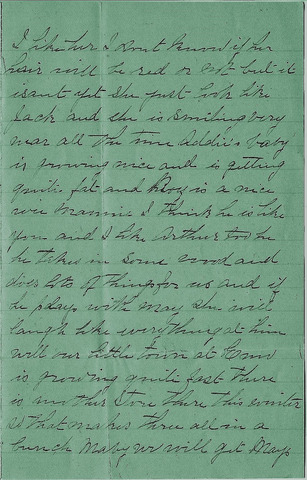 I like her I dont know if her
hair will be red or not but it
isant yet she just look like
Jack and she is smiling very
near all the time Addies baby
is growing nice and is getting
quite fat and is a nice
one Mammie I think he is like
you and I like Arthur too he
he takes in some wood and
does lots of things for us and if
he plays with May she will
laugh like everything at him
well our little town at
is growing quite fast there
is another Store there this winter
so that makes three all in a
bunch Maby we will get